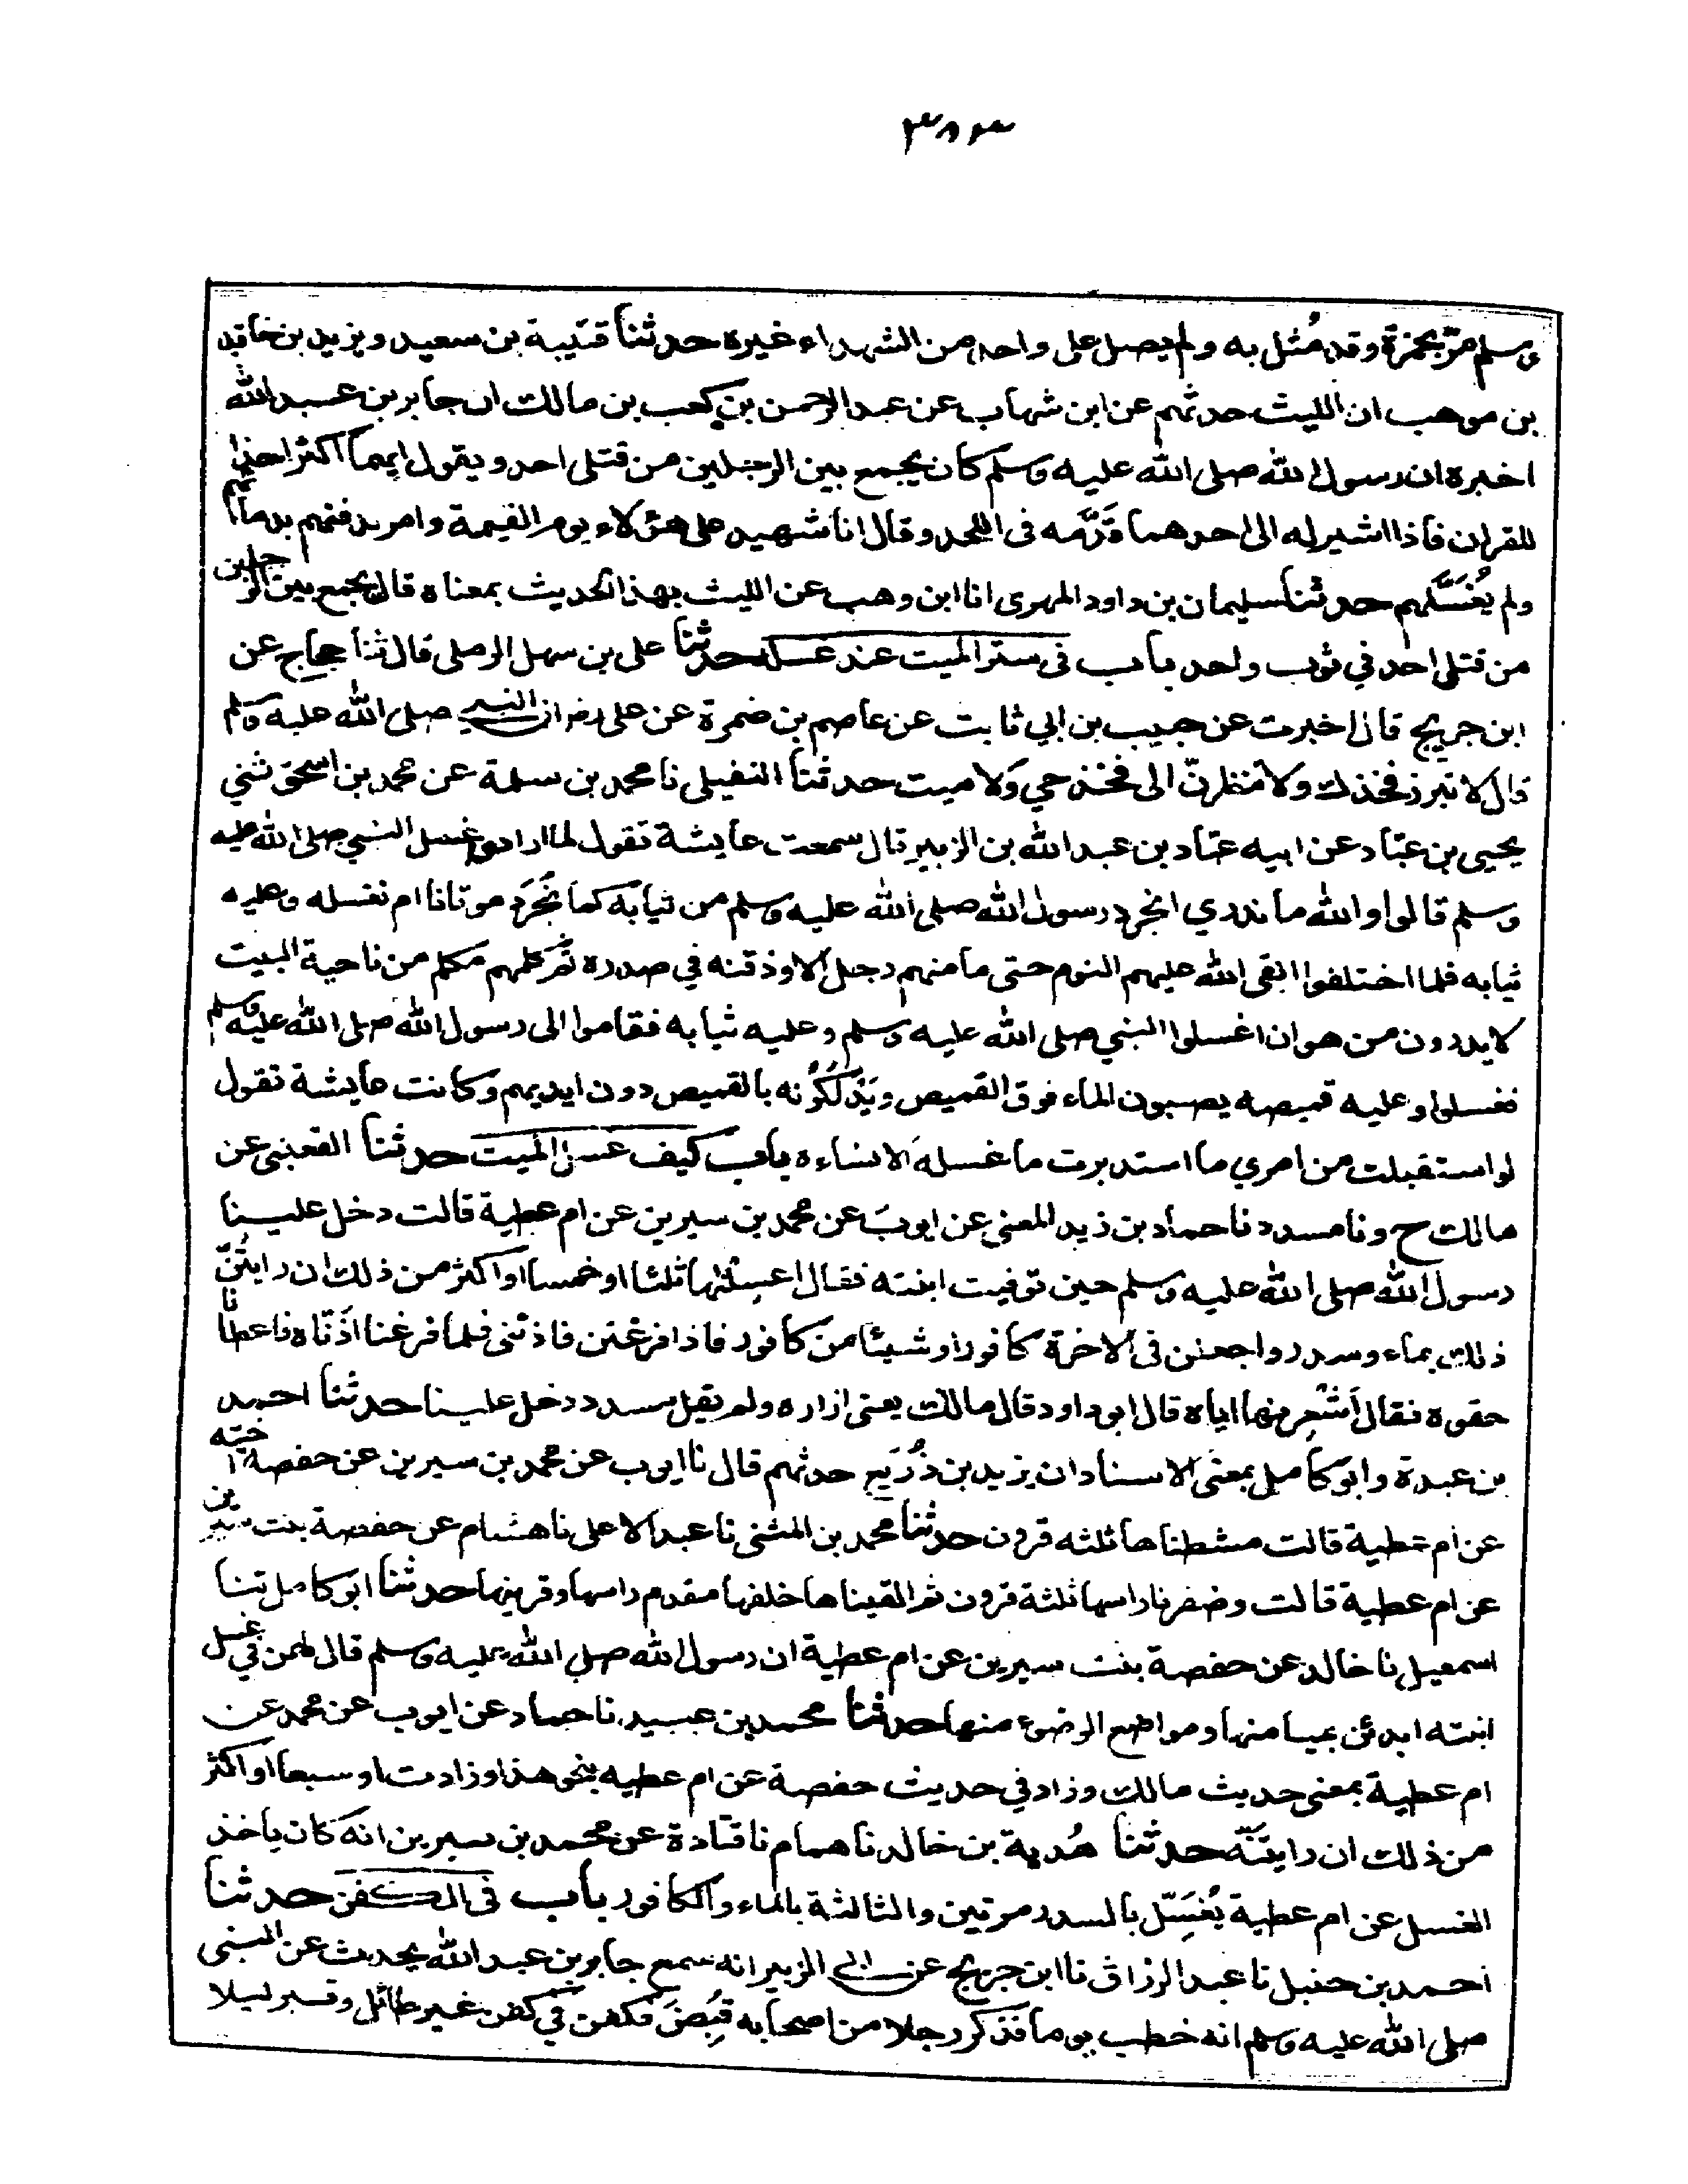 ٣٨٣
وسلم مرّ بحمزة وقد مُثل به ولم يصل على واحد من الشهداء غيره حدثنا قتيبة بن سعيد ويزيد بن خالد
بن موهب ان الليث حدثهم عن ابن شهاب عن عبد الرحمن بن كعب بن مالك ان جابر بن عبد الله
اخبره ان رسول الله صلى الله عليه وسلم كان يجمع بين الرجلين من قتلى احد ويقول ايهما اكثر اخذا
للقران فاذا اشير له الى احدهما قدّمه فى اللحد وقال انا شهيد على هؤلاء يوم القيمة وامر بدفنهم بدمائهم
ولم يُغسَّلهم حدثنا سليمان بن داود المهرى انا ابن وهب عن الليث بهذا الحديث بمعناه قال يجمع بين الرجلين
من قتلى احد في ثوب واحد باب فى ستر الميت عند غسله حدثنا على بن سهل الرملى قال ثنا حجاج عن
ابن جريج قال اخبرت عن حبيب بن ابي ثابت عن عاصم بن ضمرة عن على رض ان النبي صلى الله عليه وسلم
قال لا تبرز فخذك ولا تنظرنّ الى فخذ حي ولا ميت حدثنا النفيلى نا محمد بن سلمة عن محمد بن اسحق ثني
يحيى بن عبّاد عن ابيه عبّاد بن عبد الله بن الزبير قال سمعت عايشة تقول لما ارادوا غسل النبي صلى الله عليه
وسلم قالوا والله ما ندري انجرد رسول الله صلى الله عليه وسلم من ثيابه كما نُجَرّد موتانا ام نغسله وعليه
ثيابه فلما اختلفوا القى الله عليهم النوم حتى ما منهم رجل الا وذقنه في صدره ثم كلمهم مكلم من ناحية البيت
لا يدرون من هو ان اغسلوا النبي صلى الله عليه وسلم وعليه ثيابه فقاموا الى رسول الله صلى الله عليه وسلم
فغسلوا وعليه قميصه يصبون الماء فوق القميص ويَدْلُكُونه بالقميص دون ايديهم وكانت عايشة تقول
لو استقبلت من امري ما استدبرت ما غسله الا نساءه باب كيف غسل الميت حدثنا القعنبى عن
مالك ح ونا مسدد نا حماد بن زيد المعنى عن ايوب عن محمد بن سيرين عن ام عطية قالت دخل علينا
رسول الله صلى الله عليه وسلم حين توفيت ابنته فقال اغسلنها ثلثا او خمسا او اكثر من ذلك ان رايتُنّ
ذلك بماء وسدر واجعلن فى الاخرة كافورا او شيئا من كافور فاذا فرغتن فاذننى فلما فرغنا اذنّاه فاعطانا
حقوه فقال أشْعِرنها اياه قال ابو داود قال مالك يعنى ازاره ولم يقل مسدد دخل علينا حدثنا احمد
بن عبدة وابو كامل بمعنى الاسناد ان يزيد بن زُرَيع حدثهم قال نا ايوب عن محمد بن سيرين عن حفصة اخته
عن ام عطية قالت مشطناها ثلثه قرون حدثنا محمد بن المثنى نا عبد الاعلى نا هشام عن حفصة بنت سيرين
عن ام عطية قالت وضفرنا راسها ثلثة قرون ثم القيناها خلفها مقدم راسها وقرنيها حدثنا ابو كامل ثنا
اسمعيل نا خالد عن حفصة بنت سيرين عن ام عطية ان رسول الله صلي الله عليه وسلم قال لهن في غسل
ابنته ابدئن بميامنها ومواضع الوضوء منها حدثنا محمد بن عبيد نا حماد عن ايوب عن محمد عن
ام عطية بمعنى حديث مالك وزاد في حديث حفصة عن ام عطيه بنحو هذا وزادت او سبعا او اكثر
من ذلك ان رايتنّه حدثنا هُدبة بن خالد نا همام نا قتادة عن محمد بن سيرين انه كان ياخذ
الغسل عن ام عطية يُغسِّل بالسدر مرتين والثالثة بالماء والكافور باب فى الكفن حدثنا
احمد بن حنبل نا عبد الرزاق نا ابن جريج عن ابي الزبير انه سمع جابر بن عبد الله يحدث عن النبى
صلى الله عليه وسلم انه خطب يوما فذكر رجلا من اصحابه قُبِضَ فكفن في كفن غير طائل وقبر ليلا